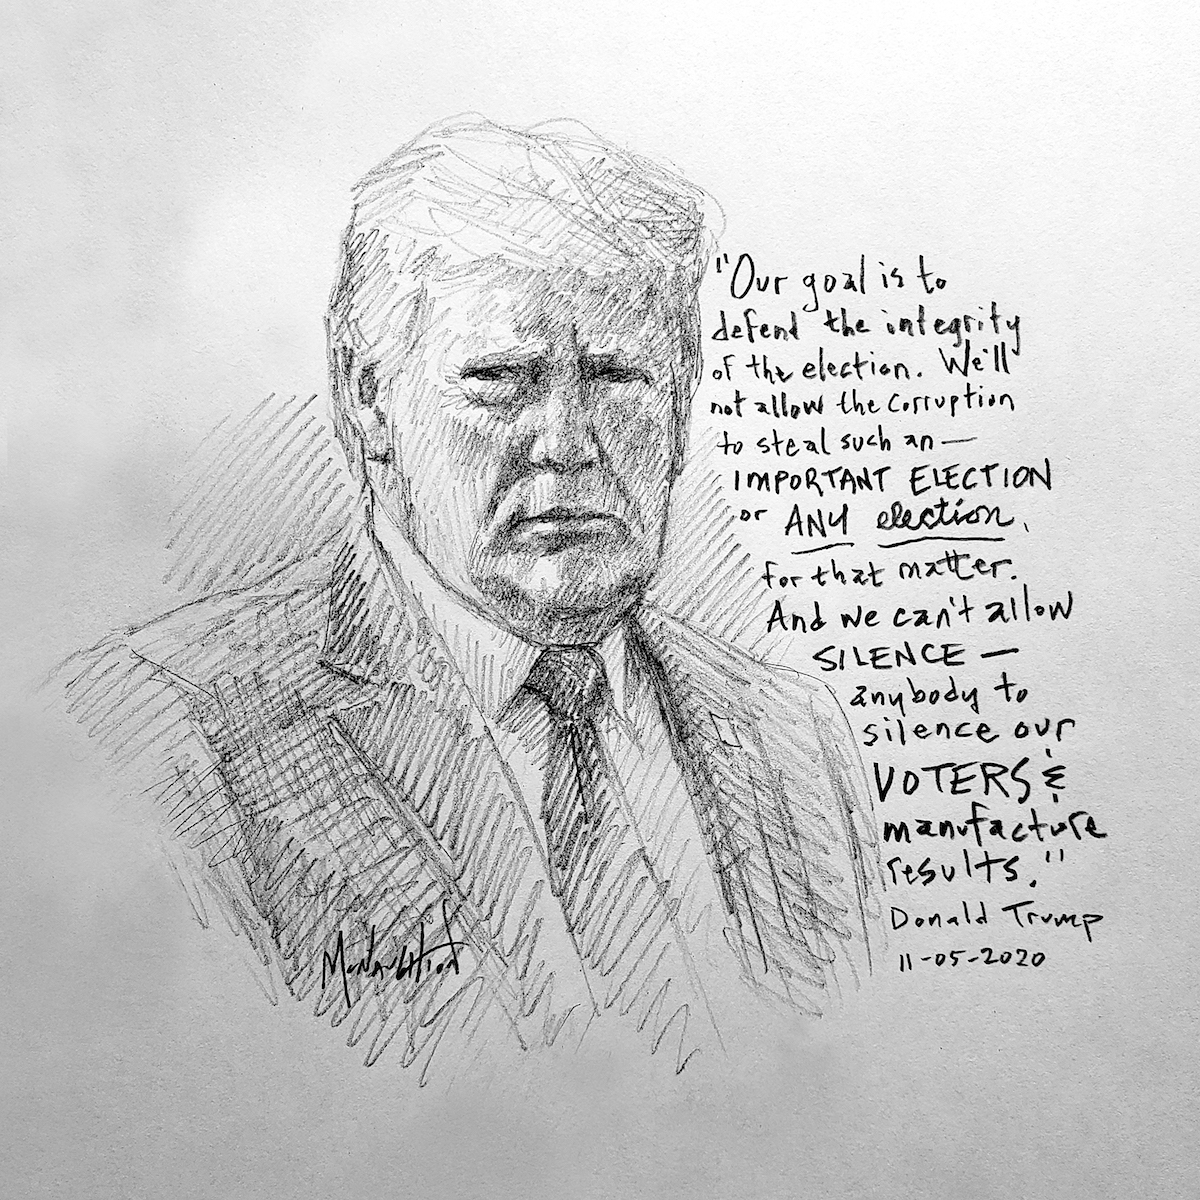 "Our goal is to
defend the integrity
of the election. We'll
not allow the corruption
to steal such an —
IMPORTANT ELECTION
or ANY election,
for that matter.
And we can't allow
SILENCE —
anybody to
silence our
VOTERS &
manufacture
results."
Donald Trump
11-05-2020
McNaughton